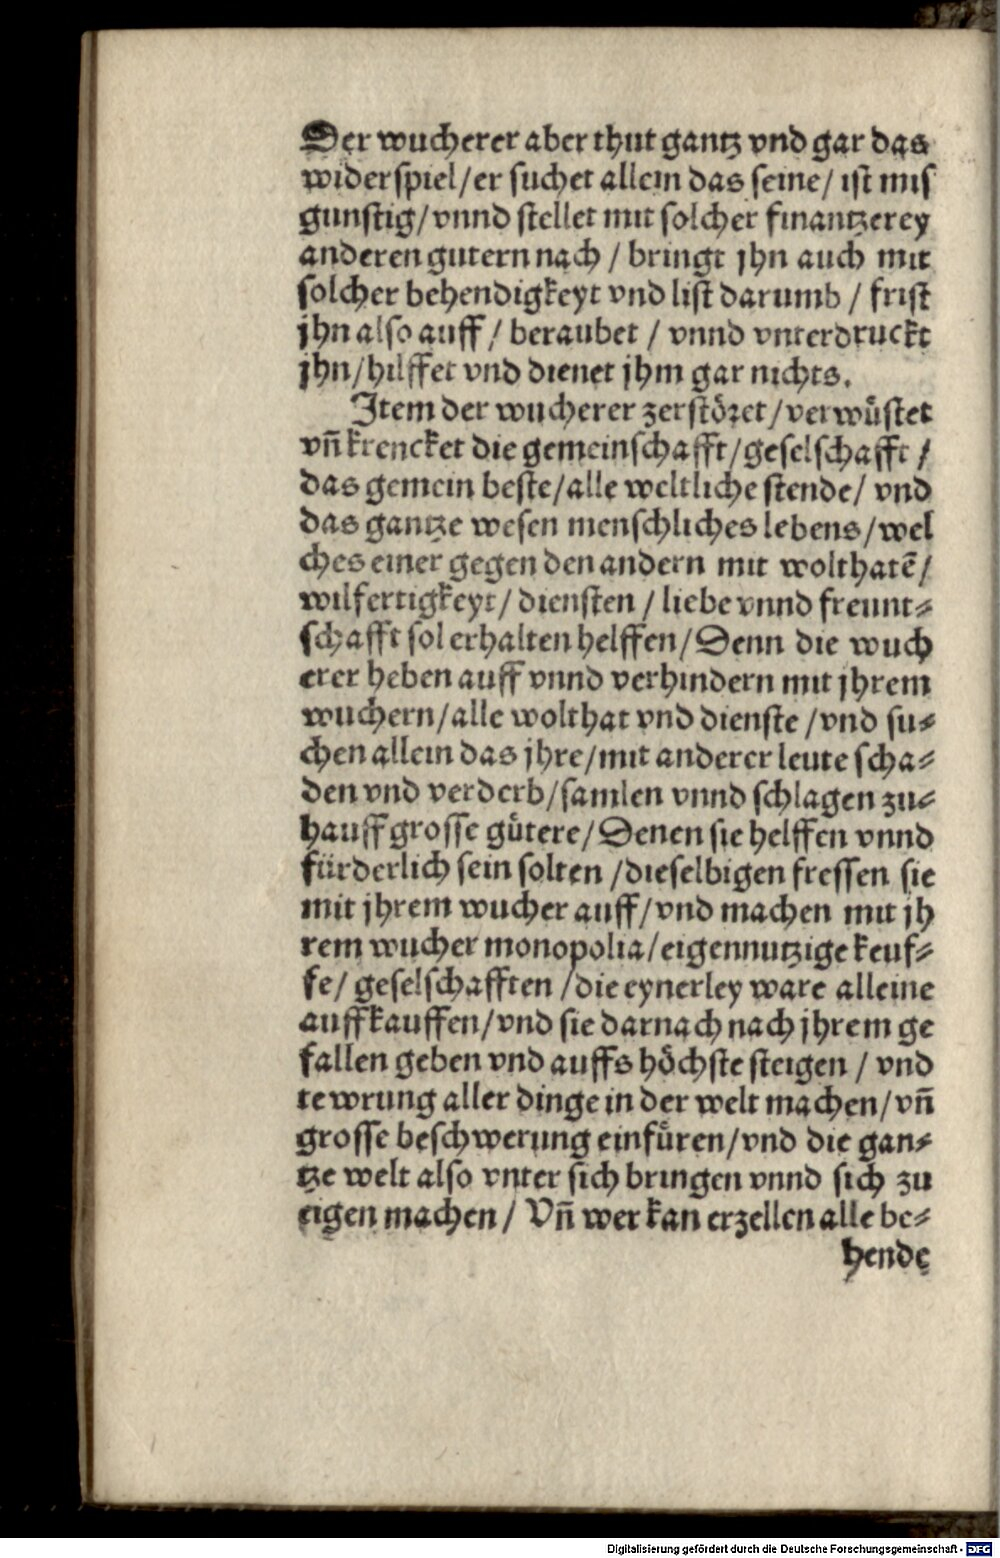 Der wucherer aber thut gantz vnd gar das
widerspiel/er suchet allein das seine/ ist mis
gunstig/vnnd stellet mit solcher finantzerey
anderen gutern nach / bringt jhn auch mit
solcher behendigkeyt vnd list darumb / frist
jhn also auff / beraubet / vnnd vnterdruckt
jhn/hilffet vnd dienet jhm gar nichts.
Item der wucherer zerstöret/verwüstet
vñ krencket die gemeinschafft/geselschafft /
das gemein beste/alle weltliche stende/ vnd
das gantze wesen menschliches lebens/wel
ches einer gegen den andern mit wolthatē/
wilfertigkeyt/ diensten / liebe vnnd freunt⸗
schafft sol erhalten helffen/Denn die wuch
erer heben auff vnnd verhindern mit jhrem
wuchern/alle wolthat vnd dienste /vnd su⸗
chen allein das jhre/mit anderer leute scha⸗
den vnd verderb/samlen vnnd schlagen zu⸗
hauff grosse gütere/Denen sie helffen vnnd
fürderlich sein solten /dieselbigen fressen sie
mit jhrem wucher auff/vnd machen mit jh
rem wucher monopolia/eigennutzige keuf⸗
fe/ geselschafften /die eynerley ware alleine
auffkauffen/vnd sie darnach nach jhrem ge
fallen geben vnd auffs höchste steigen / vnd
tewrung aller dinge in der welt machen/vñ
grosse beschwerung einfüren/vnd die gan⸗
tze welt also vnter sich bringen vnnd sich zu
eigen machen / Vñ wer kan erzellen alle be⸗
hende
Digitalisierung gefördert durch die Deutsche Forschungsgemeinschaft - DFG